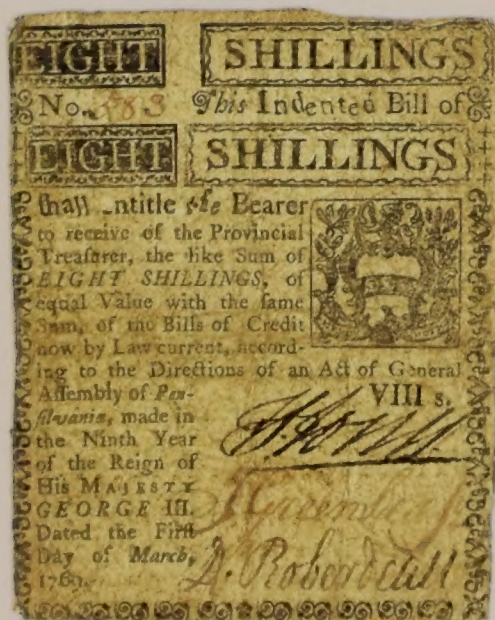 EIGHT SHILLINGS
No. 383 This Indented Bill of
EIGHT SHILLINGS
shall entitle the Bearer
to receive of the Provincial
Treasurer, the like Sum of
EIGHT SHILLINGS, of
equal Value with the same
Sum, of the Bills of Credit
now by Law current, accord-
ing to the Directions of an Act of General
Assembly of Pen-
silvania, made in
the Ninth Year
of the Reign of
His MAJESTY
GEORGE III.
Dated the First
Day of March,
1769.
VIII s.